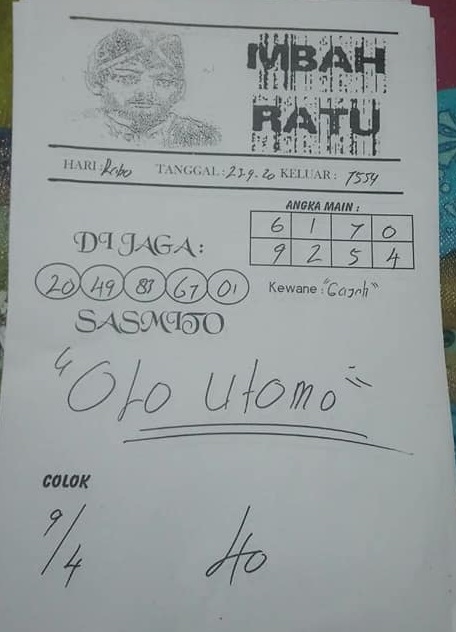 MBAH
RATU
HARI : Rabo TANGGAL : 23.9.20 KELUAR : 7554
ANGKA MAIN :
6 1 7 0
9 2 5 4
DI JAGA :
20 49 83 67 01
Kewane : "Gajah"
SASMITO
"Oto Utomo"
COLOK
9/4